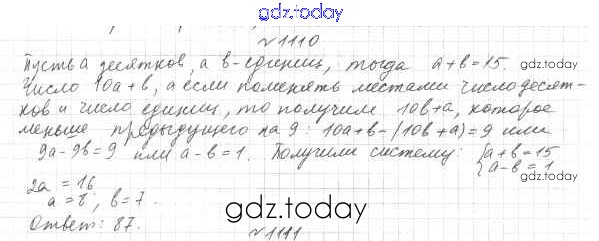 gdz.today
№1110
Пусть a десятков, а b-единиц, тогда a+b=15.
gdz.today
Число 10a+b, а если поменять местами число десят-
ков и число единиц, то получим 10b+a, которое
меньше предыдущего на 9: 10a+b-(10b+a)=9 или
9a-9b=9 или a-b=1. Получили систему: {a+b=15
a-b=1
gdz.today
2a=16
a=8, b=7.
gdz.today
Ответ: 87.
gdz.today
№1111